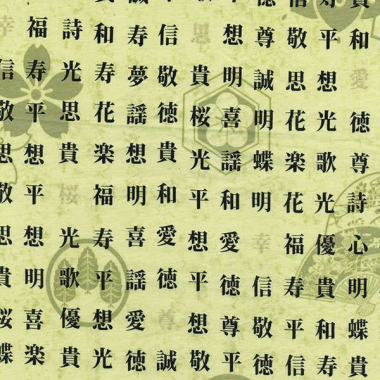 和愛徳尊詩心明蝶貴
寿平想光歌光優貴和寿
信敬思花楽花福寿平信
徳尊誠明蝶明幸信敬徳
想明喜謡和愛徳尊平
思貴桜光平想平想敬
信敬徳貴和愛徳尊誠
誠寿夢謡想明喜謡明徳
和寿花楽福寿平想光
詩光思貴桜光歌優貴
福寿平想平想明喜楽
幸信敬思敬思貴桜蝶